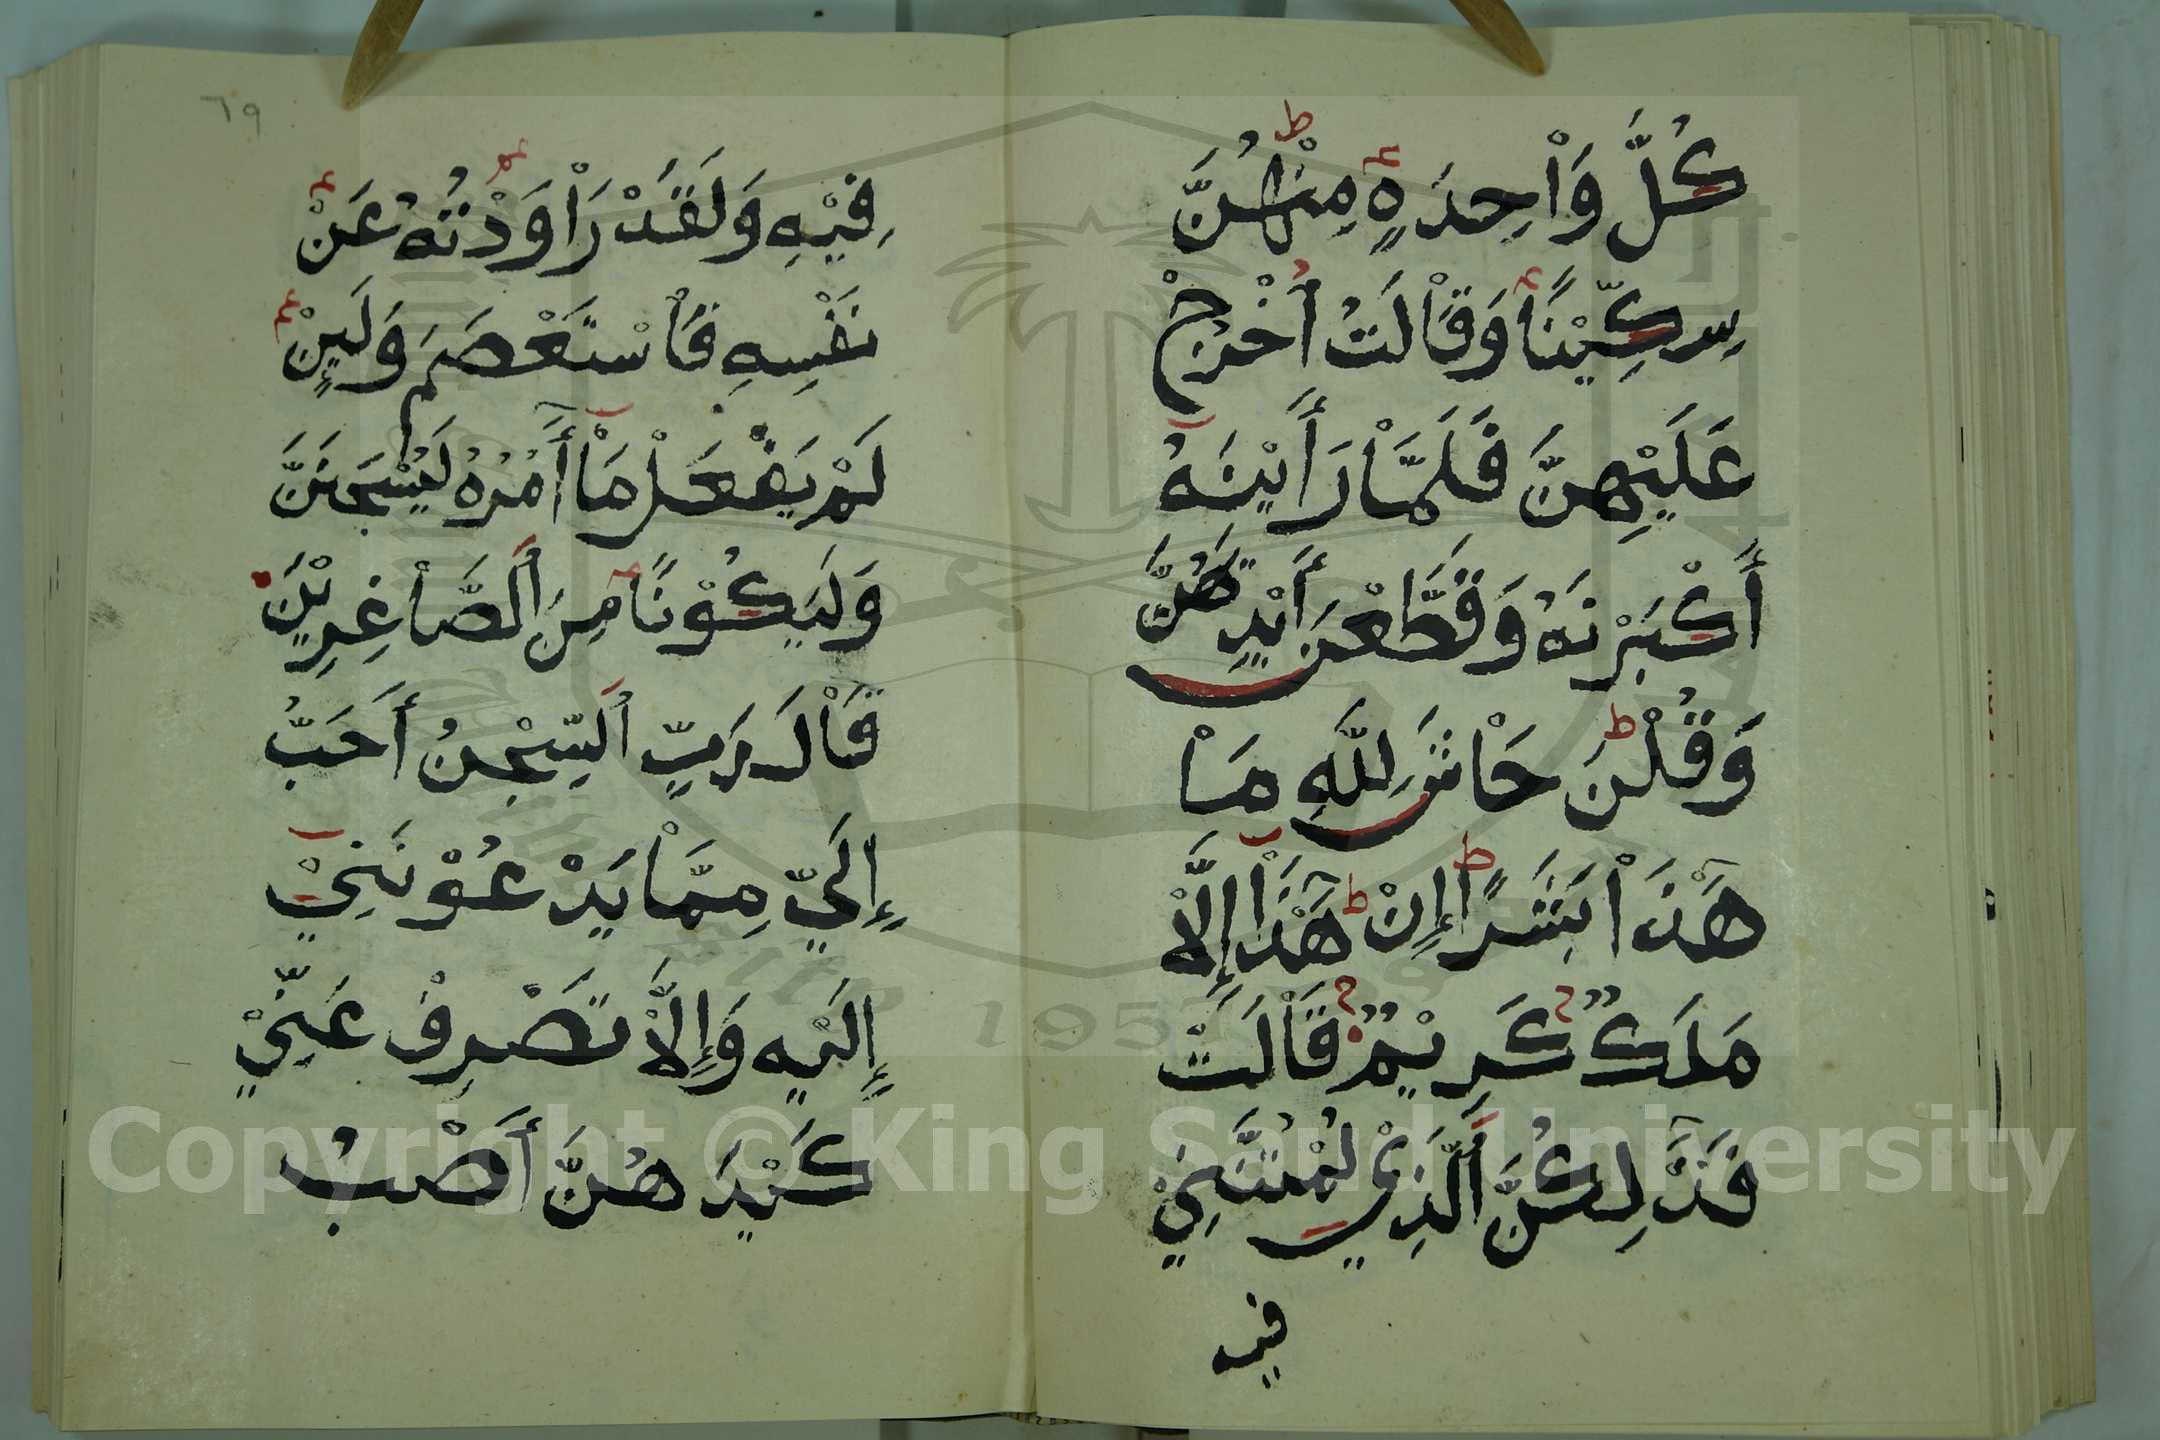 كُلَّ وَاْحِدَةٍ مِنْهُنَّ
سِكِّيْنًا وَقَاْلَتُ اُخْرُجْ
عَلَيْهِنَّ فَلَمَّاْ رَأَيْنَهُ
أَكْبَرْنَهُ وَقَطَّعْنَ أَيْدِيَهُنَّ
وَقُلْنَ حَاْشَ لِلَّهِ مَاْ
هَذَاْ بَشَرًا إِنْ هَذَاْ إِلَّاْ
مَلَكٌ كَرِيْمٌ قَاْلَتْ
فَذَلِكُنَّ اَلَّذِيْ لُمْتُنَّنِيْ
فيه
٦٩
فِيْهِ وَلَقَدْ رَاْوَدْتُهُ عَنْ
نَفْسِهِ فَاْسْتَعْصَمَ وَلَئِنْ
لَمْ يَفْعَلْ مَاْ أَمُرُهُ لَيُسْجَنَنَّ
وَلَيَكُوْنًا مِنَ اَلصَّاْغِرِيْنَ
قَاْلَ رَبِّ اَلسِّجْنُ أَحَبُّ
إِلَيَّ مِمَّاْ يَدْعُوْنَنِيْ
إِلَيْهِ وَإِلَّاْ تَصْرِفْ عَنِّيْ
كَيْدَهُنَّ أَصْبُ
Copyright © King Saud University
1957